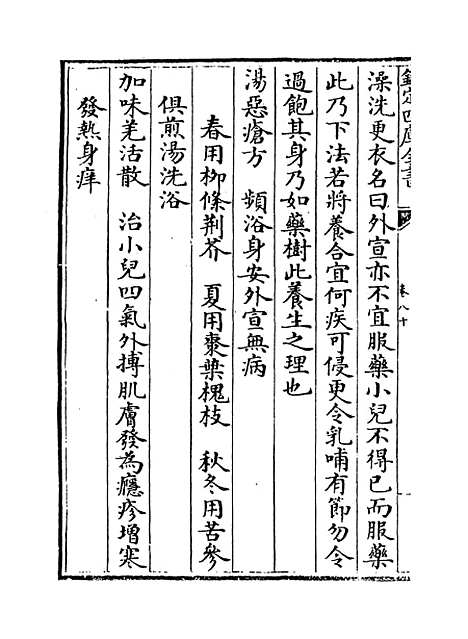 欽定四庫全書
卷八十
澡洗更衣名曰外宣亦不宜服藥小兒不得已而服藥
此乃下法若將養合宜何疾可侵更令乳哺有節勿令
過飽其身乃如藥樹此養生之理也
湯惡瘡方　頻浴身安外宣無病
春用柳條荆芥　夏用棗葉槐枝　秋冬用苦參
俱煎湯洗浴
加味羌活散　治小兒四氣外搏肌膚發為癮疹增寒
發熱身痒